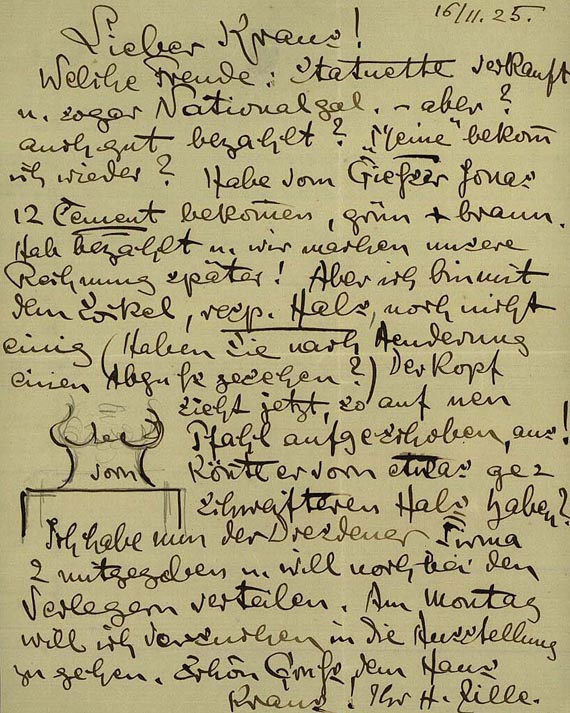 16/II. 25.
Lieber Kraus!
Welche Freude: Statuette verkauft
u. sogar Nationalgal. - aber?
auch gut bezahlt? "Meine" bekom̄
ich wieder? Habe vom Gießer Jonas
12 Cement bekom̄en, grün + braun.
Hab bezahlt u. wir machen unsere
Rechnung später! Aber ich bin mit
dem Sockel, resp. Hals, noch nicht
einig (Haben Sie nach Aenderung
einen Abguß gesehen?) Der Kopf
sieht jetzt, so auf nen
Pfahl aufgeschoben, aus!
vorn
Könnte er vorn etwas ge=
schweifteren Hals haben?
Ich habe nun der Dresdener Firma
2 mitgegeben u. will noch bei den
Verlegern verteilen. Am Montag
will ich versuchen in die Ausstellung
zu gehen. Schön Gruß dem Haus
Kraus! Ihr H. Zille.